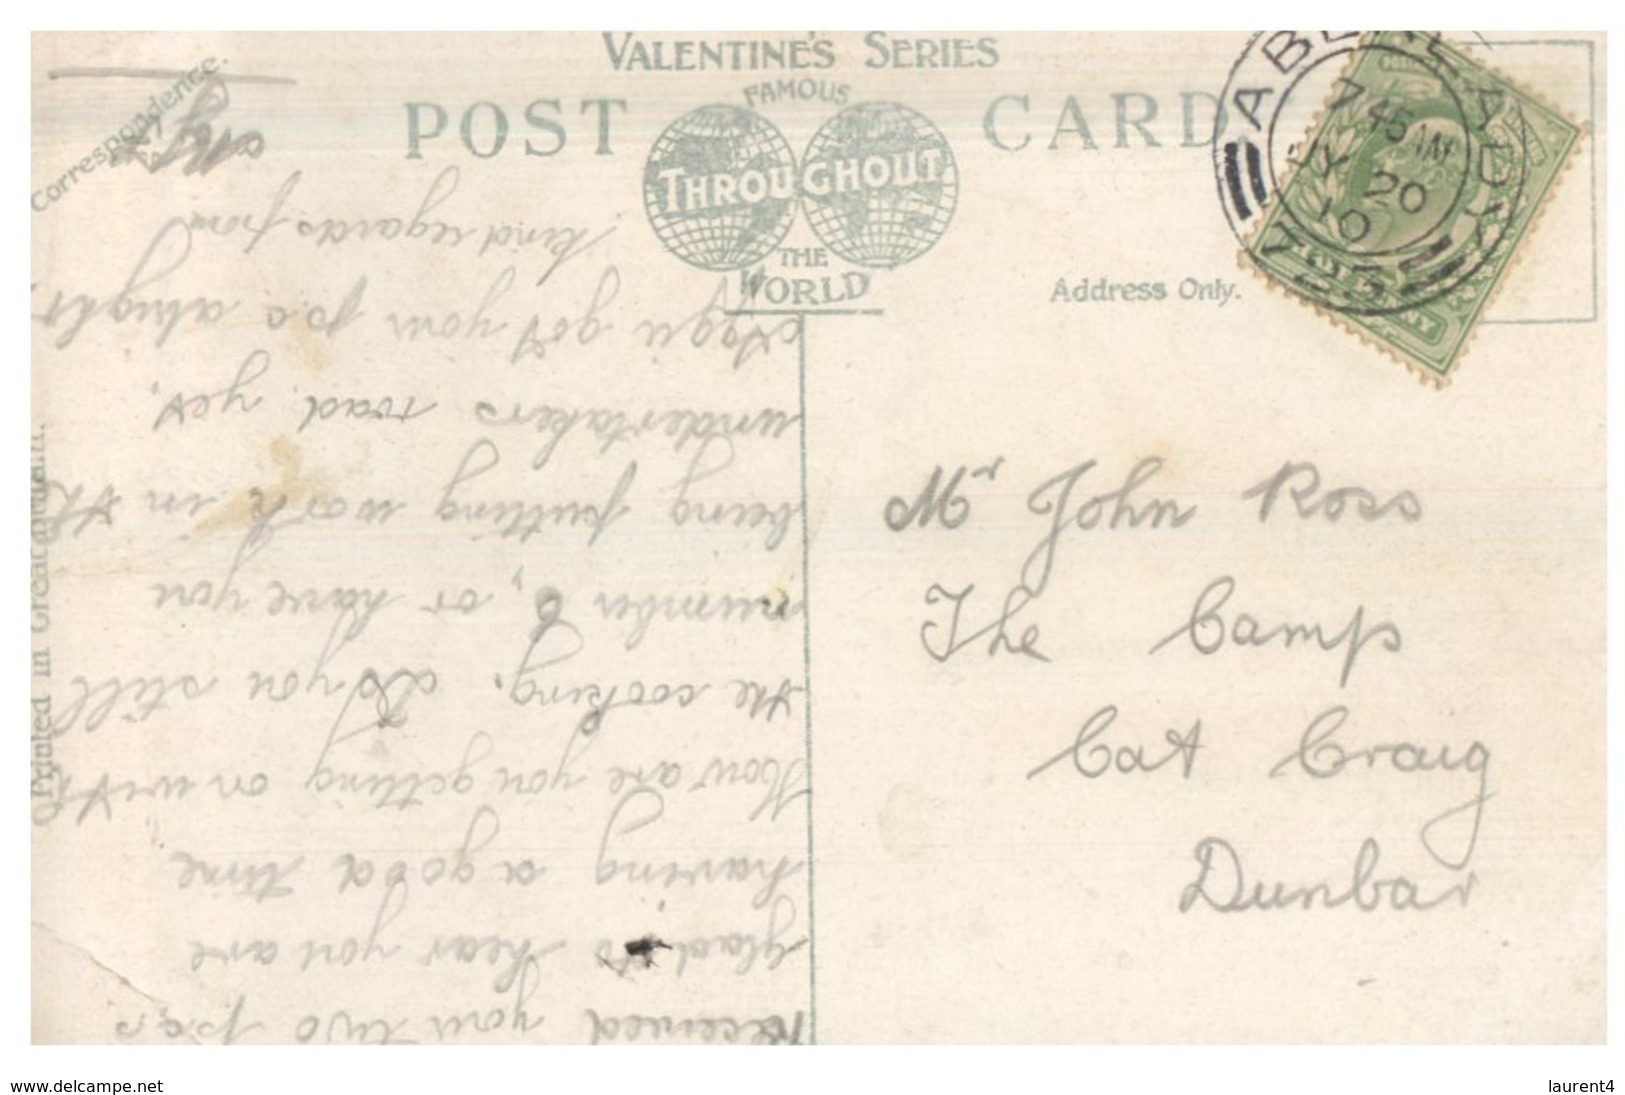 VALENTINE'S SERIES
FAMOUS
POST CARD
THROUGHOUT
THE
WORLD
Correspondence.
Address Only.
Printed in Great Britain.
7 45
JY 20
10
Z23
Mr John Ross
The Camp
Cat Craig
Dunbar
received your two p.c.s
glad to hear you are
having a good time
How are you getting on with
the cooking. do you still
number 6, or have you
being putting work in the
undertakers road yet.
got your p.c alright.
kind regards from
www.delcampe.net
laurent4